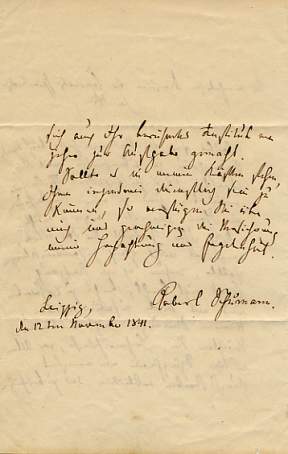 sich auch Ihr berühmtes Institut
zur Aufgabe gemacht.
Sollte es in meinen Kräften stehen,
Ihnen irgendwie dienstlich sein zu
können, so Sie über
mich und genehmigen die Versicherung
meiner Hochachtung und Ergebenheit.
Robert Schumann.
Leipzig,
den 12ten November 1841.